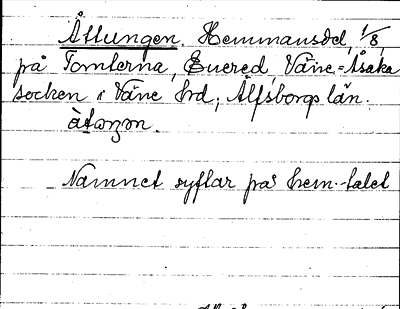 Åtlungen. Hemmansdel, 1/8,
på Tomterna, Enered, Väne-Åsaka
socken i Väne hrd, Älfsborgs län.
Namnet syftar på hem.-talet